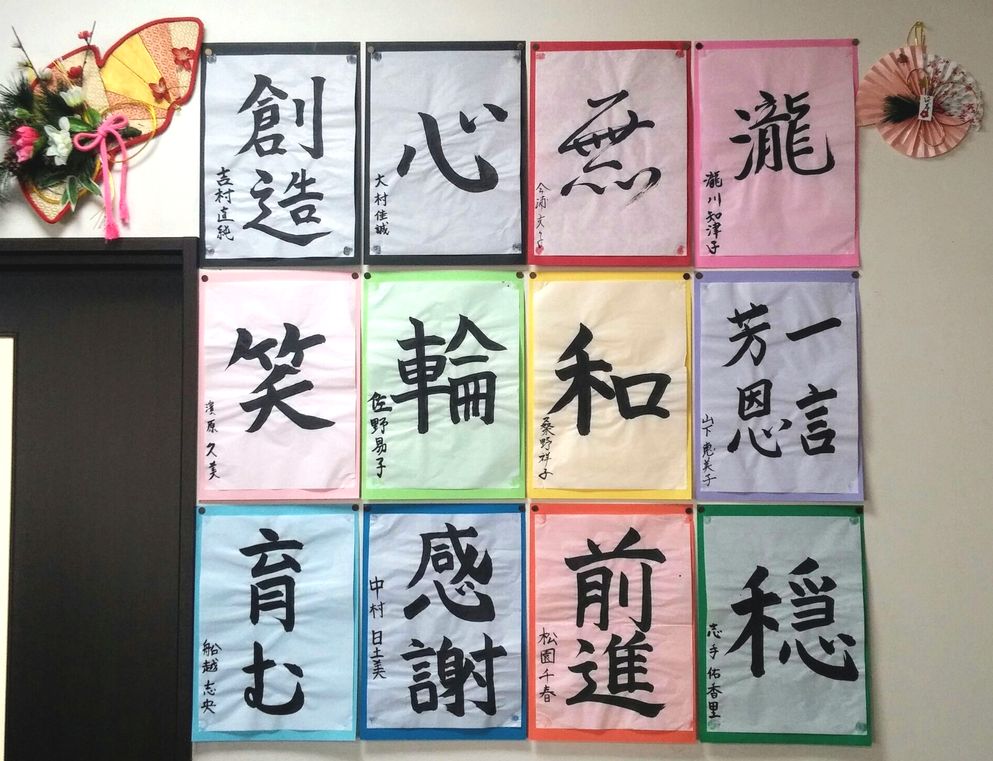 創造
吉村直純
心
大村佳誠
無
瀧
瀧川知津子
笑
濱原久美
輪
佐野易子
和
桑野祥子
一言
芳恩
山下恵美子
育む
船越志央
感謝
中村日土美
前進
松園千春
穏
志手佑香里